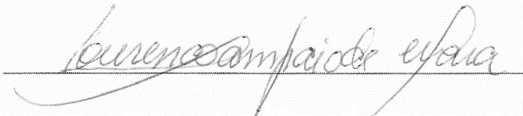 Lourenço Sampaio de Mara